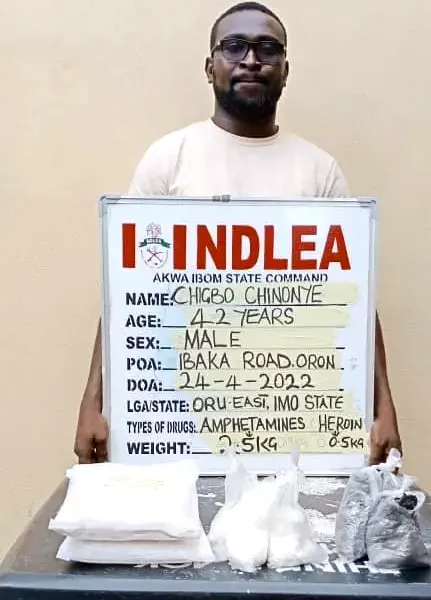 NDLEA
NDLEA
AKWA IBOM STATE COMMAND
NAME: CHIGBO CHINONYE
AGE: 42 YEARS
SEX: MALE
POA: IBAKA ROAD. ORON
DOA: 24-4-2022
LGA/STATE: ORU-EAST, IMO STATE
TYPES OF DRUGS: AMPHETAMINES HEROIN
WEIGHT: .5KG 0.5KG